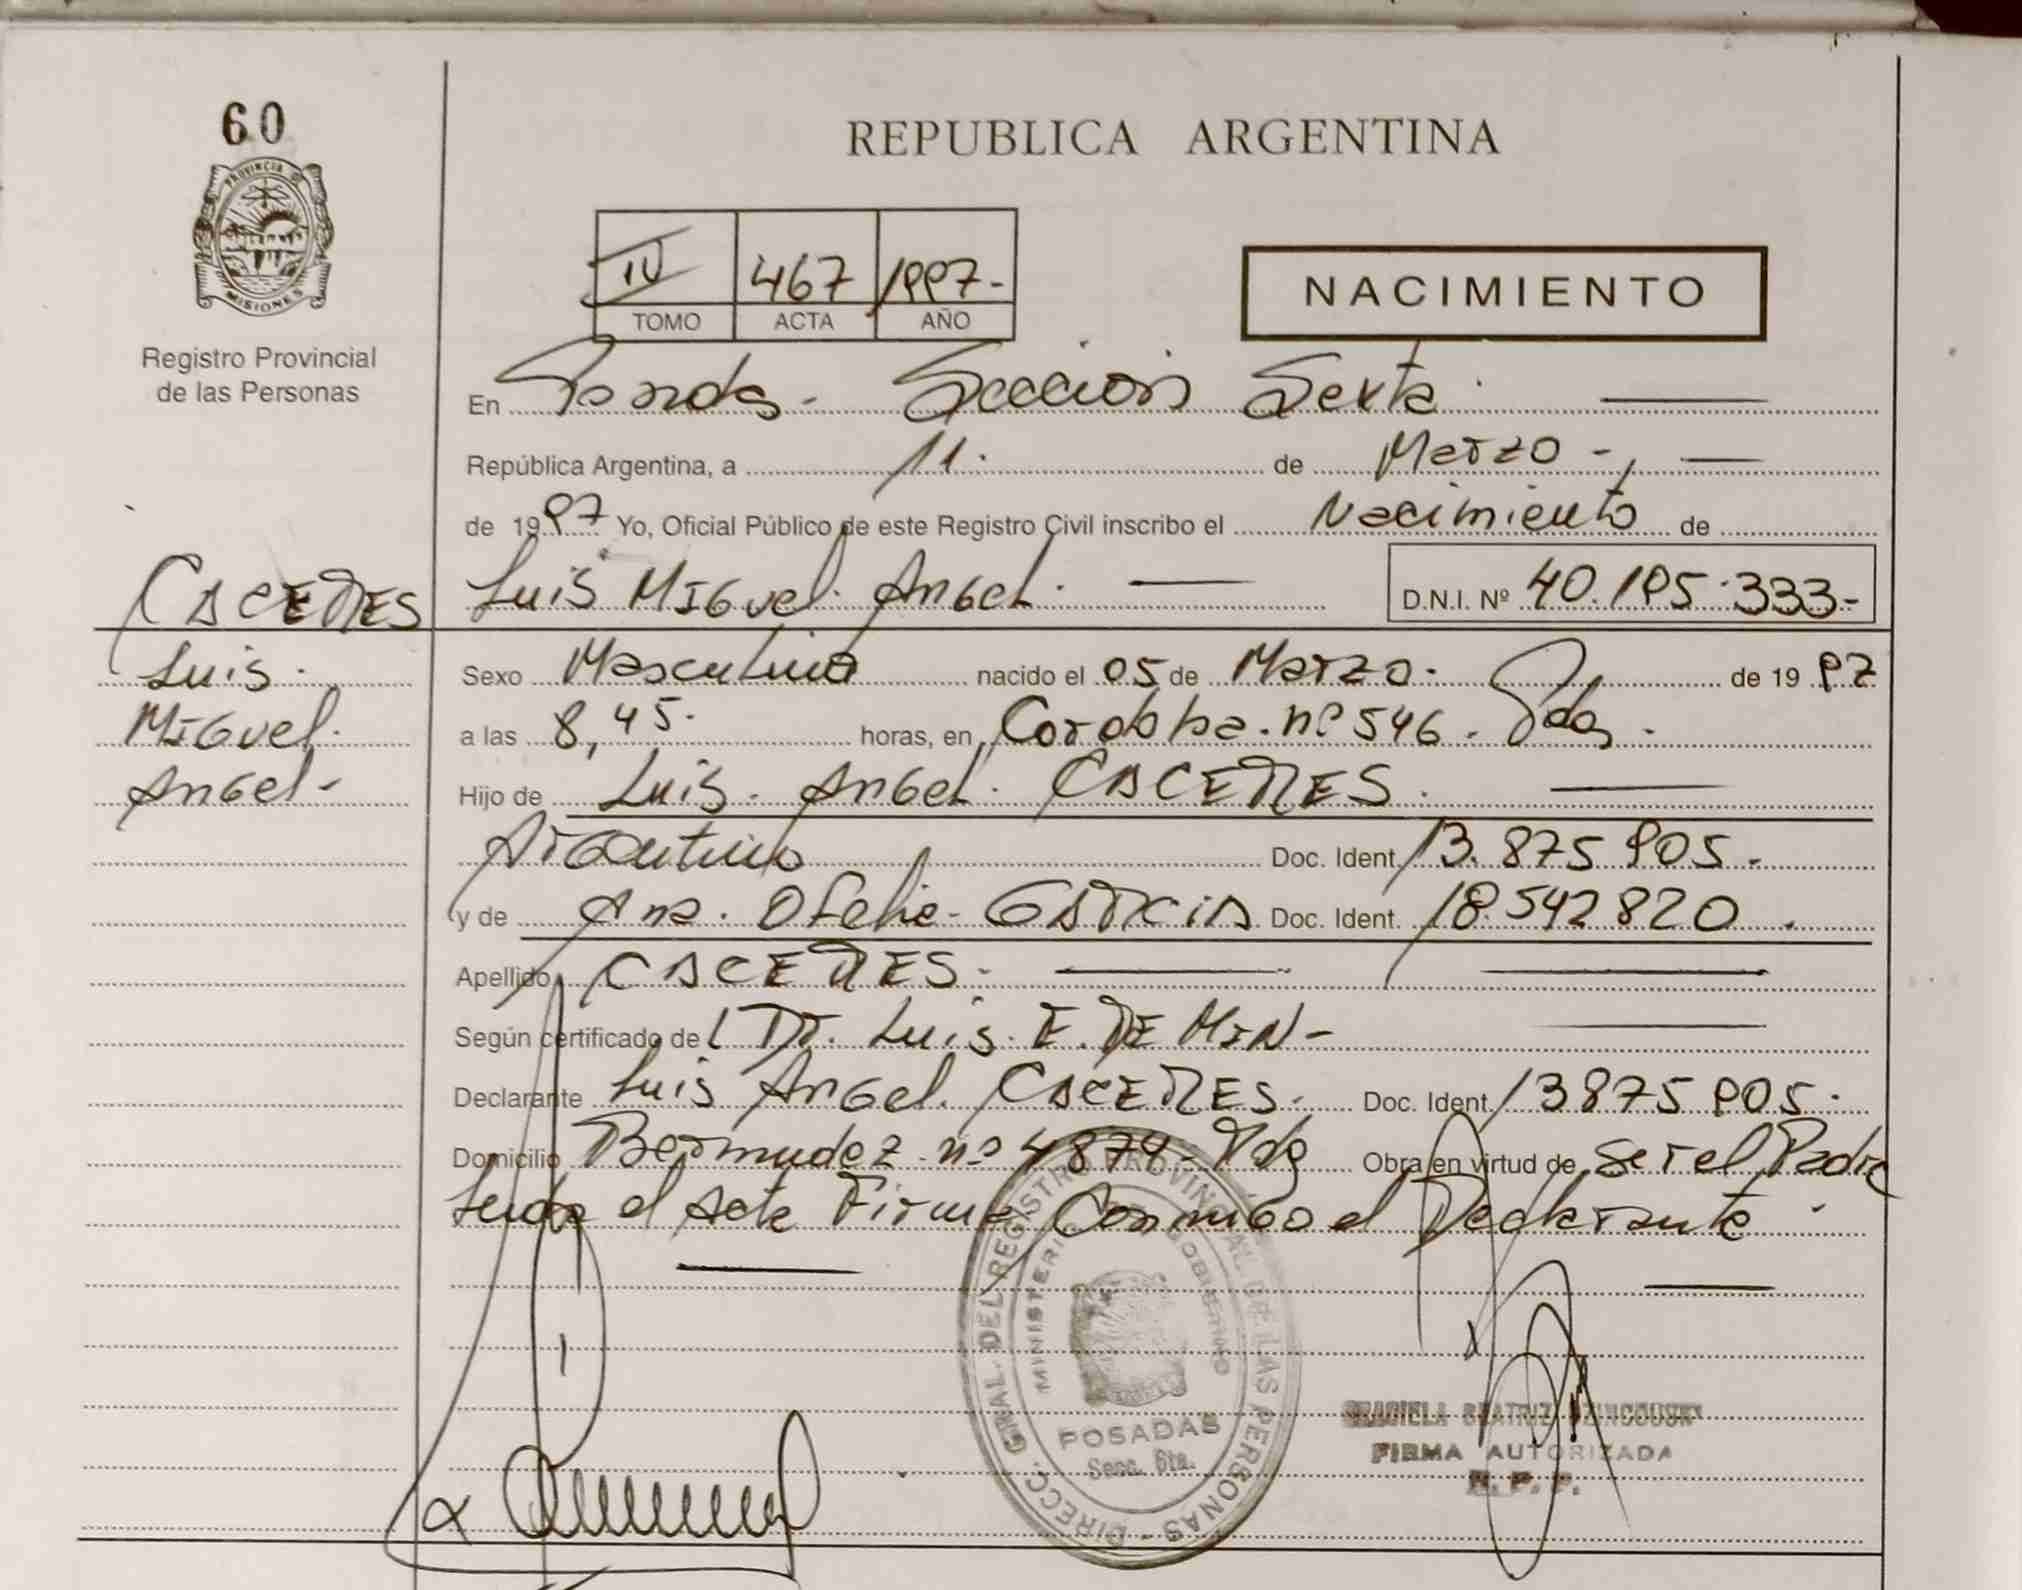 60
REPUBLICA ARGENTINA
PROVINCIA DE
MISIONES
Registro Provincial
de las Personas
IV 467 1997-
TOMO ACTA AÑO
NACIMIENTO
En Posadas - Sección Sexta.
República Argentina, a 11. de Marzo -,
de 1997 Yo, Oficial Público de este Registro Civil inscribo el Nacimiento de
Luis Miguel Angel. D.N.I. Nº 40.195.333-
CACERES
Luis.
Miguel.
Angel-
Sexo Masculino nacido el 05 de Marzo. de 1997
a las 8,45. horas, en Cordoba. nº 546. Pdas.
Hijo de Luis. Angel. CACERES.
Argentino Doc. Ident. 13.875 905.
y de Ana. Ofelia- GARCIA Doc. Ident. 18.542820.
Apellido CACERES.
Según certificado de Dr. Luis. E. DE MIN-
Declarante Luis Angel. CACERES. Doc. Ident. 13875 905.
Domicilio Bermudez nº 4874- Pdas Obra en virtud de ser el Padre
Leida el Acta Firma Conmigo el Declarante.
DIRECC. GRAL. DEL REGISTRO PROVINCIAL DE LAS PERSONAS -
MINISTERIO GOBIERNO
POSADAS
Secc. 6ta.
GRACIELA BEATRIZ
FIRMA AUTORIZADA
R. P. P.